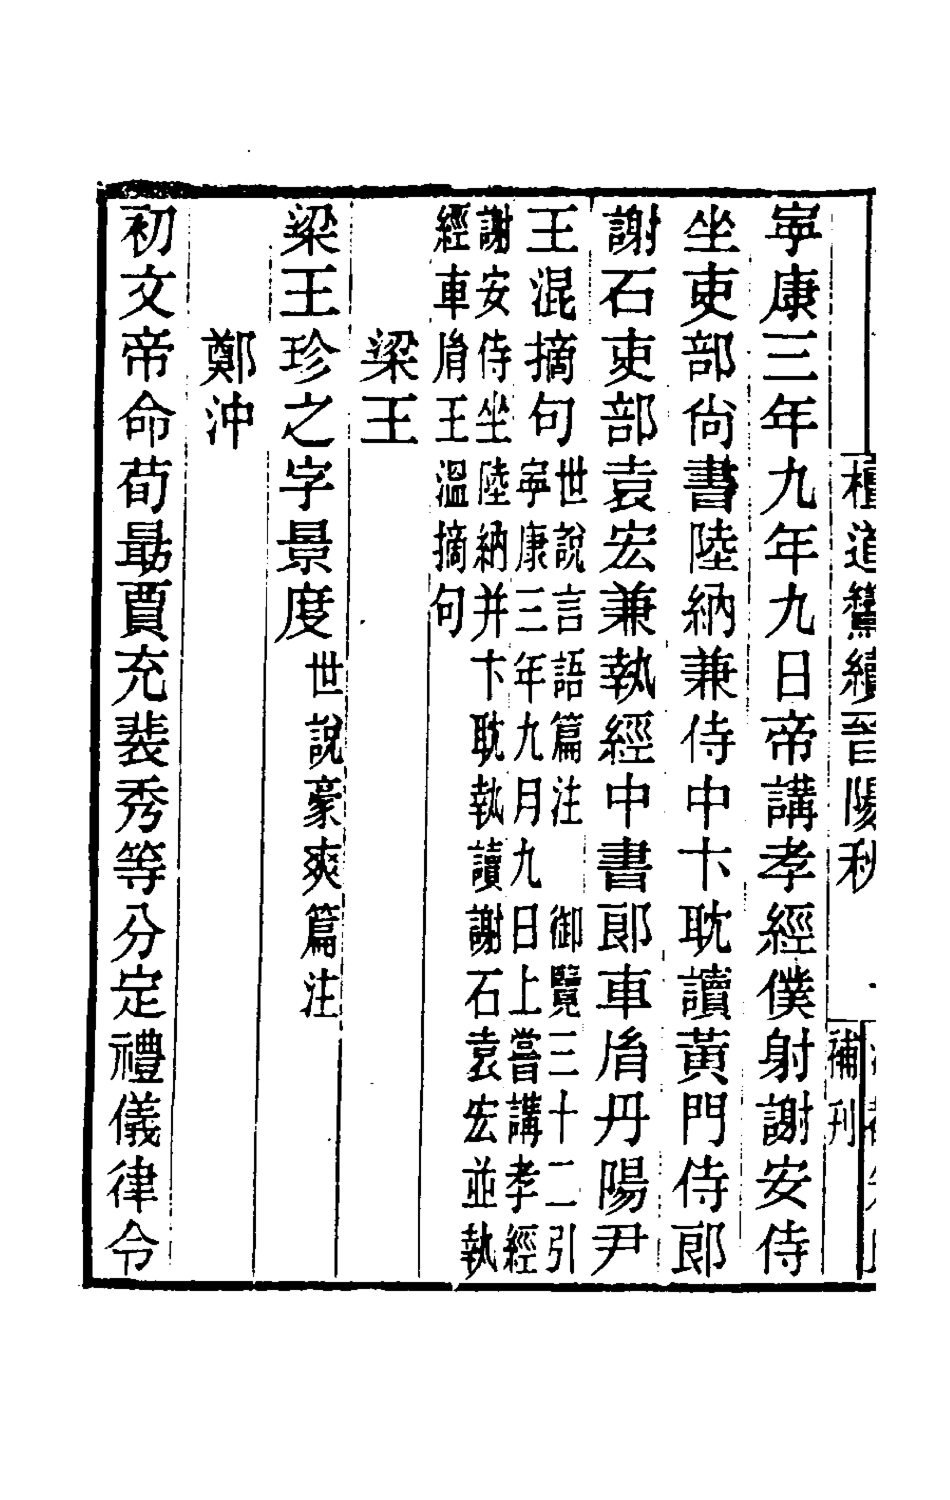 檀道鸞續晉陽秋
補刊
寧康三年九年九日帝講孝經僕射謝安侍
坐吏部尙書陸納兼侍中卞耽讀黃門侍郎
謝石吏部袁宏兼執經中書郎車胤丹陽尹
王混摘句世說言語篇注 御覽三十二引
寧康三年九月九日上嘗講孝經
謝安侍坐陸納并卞耽執讀謝石袁宏並執
經車胤王溫摘句
梁王
梁王珍之字景度世說豪爽篇注
鄭沖
初文帝命荀勗賈充裴秀等分定禮儀律令